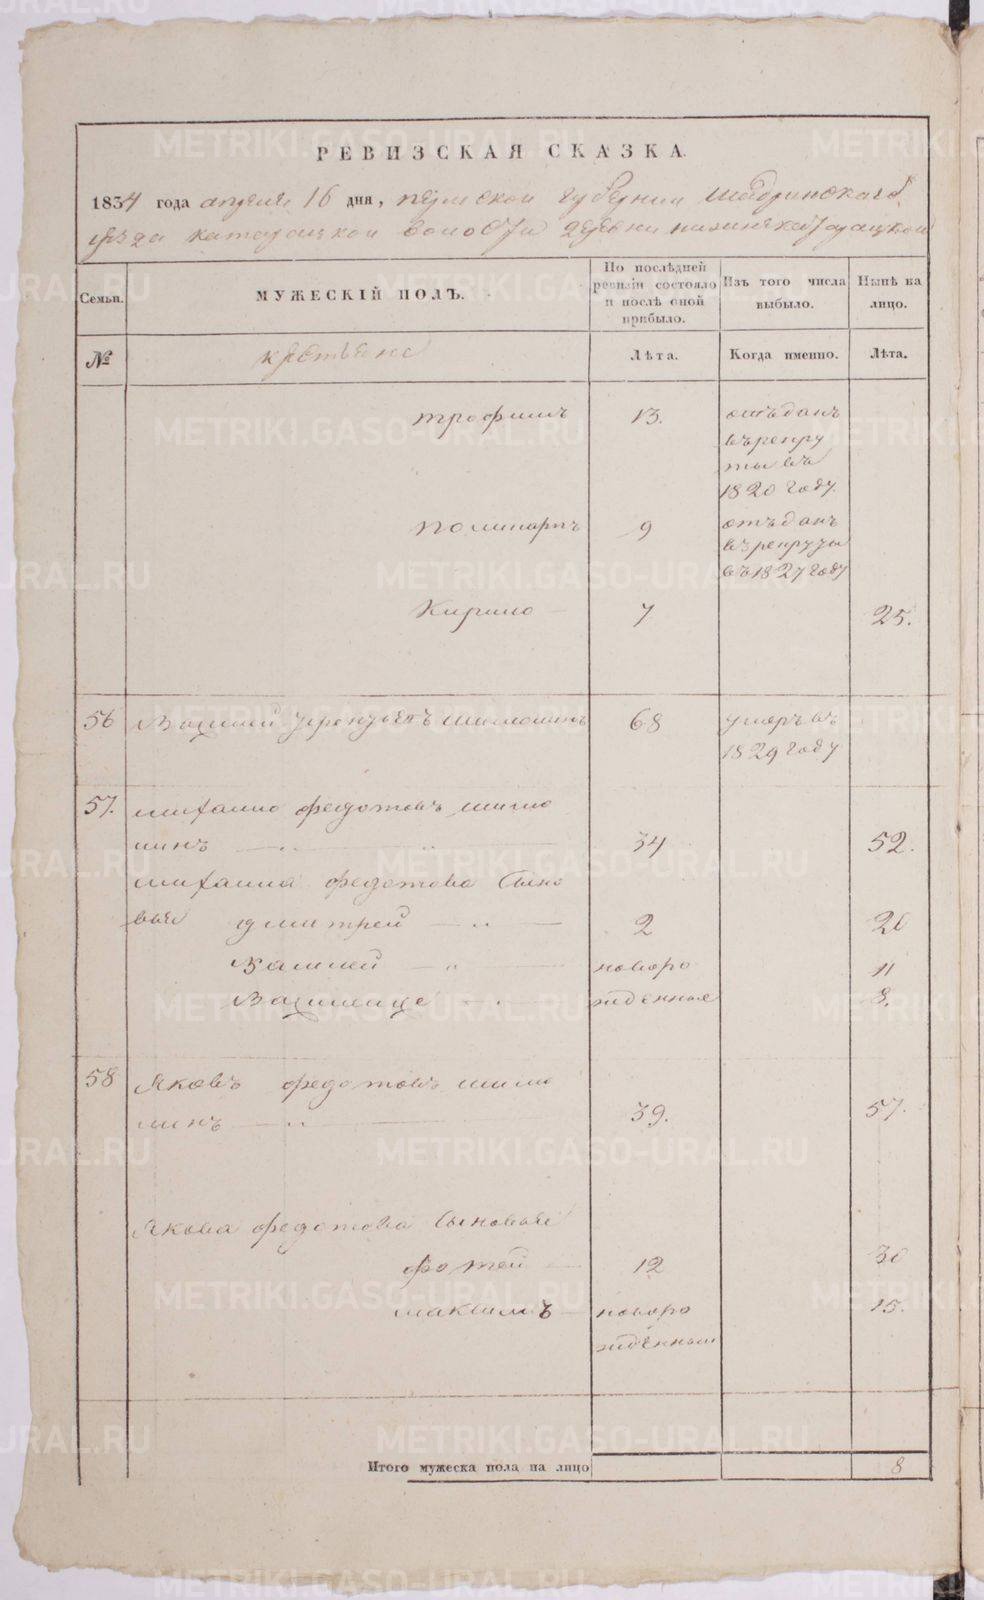 РЕВИЗСКАЯ СКАЗКА.
1834 года апреля 16 дня, пермской губернии шадринскаго
уезда катайской волости деревни
Семьи. МУЖЕСКІЙ ПОЛЪ. По послѣдней ревизіи состояло и послѣ оной прибыло. Изъ того числа выбыло. Нынѣ на лицо.
№ крестьяне Лѣта. Когда именно. Лѣта.
трофимъ 13. отъданъ
въ рекру
ты въ
1820 году.
поликарпъ 9 отъданъ
въ рекруты
въ 1827 году
Кирило 7 25.
56 68 умеръ въ
1829 году
57. михаило федотовъ
34 52.
михаила федотова сыно
вья дмитрей 2 20
новоро 11
жденные 8.
58 Яковъ федотовъ
39. 57.
Якова федотова сыновья
фотей 12 30
максимъ новоро 15.
жденный
Итого мужеска пола на лицо 8
METRIKI.GASO-URAL.RU